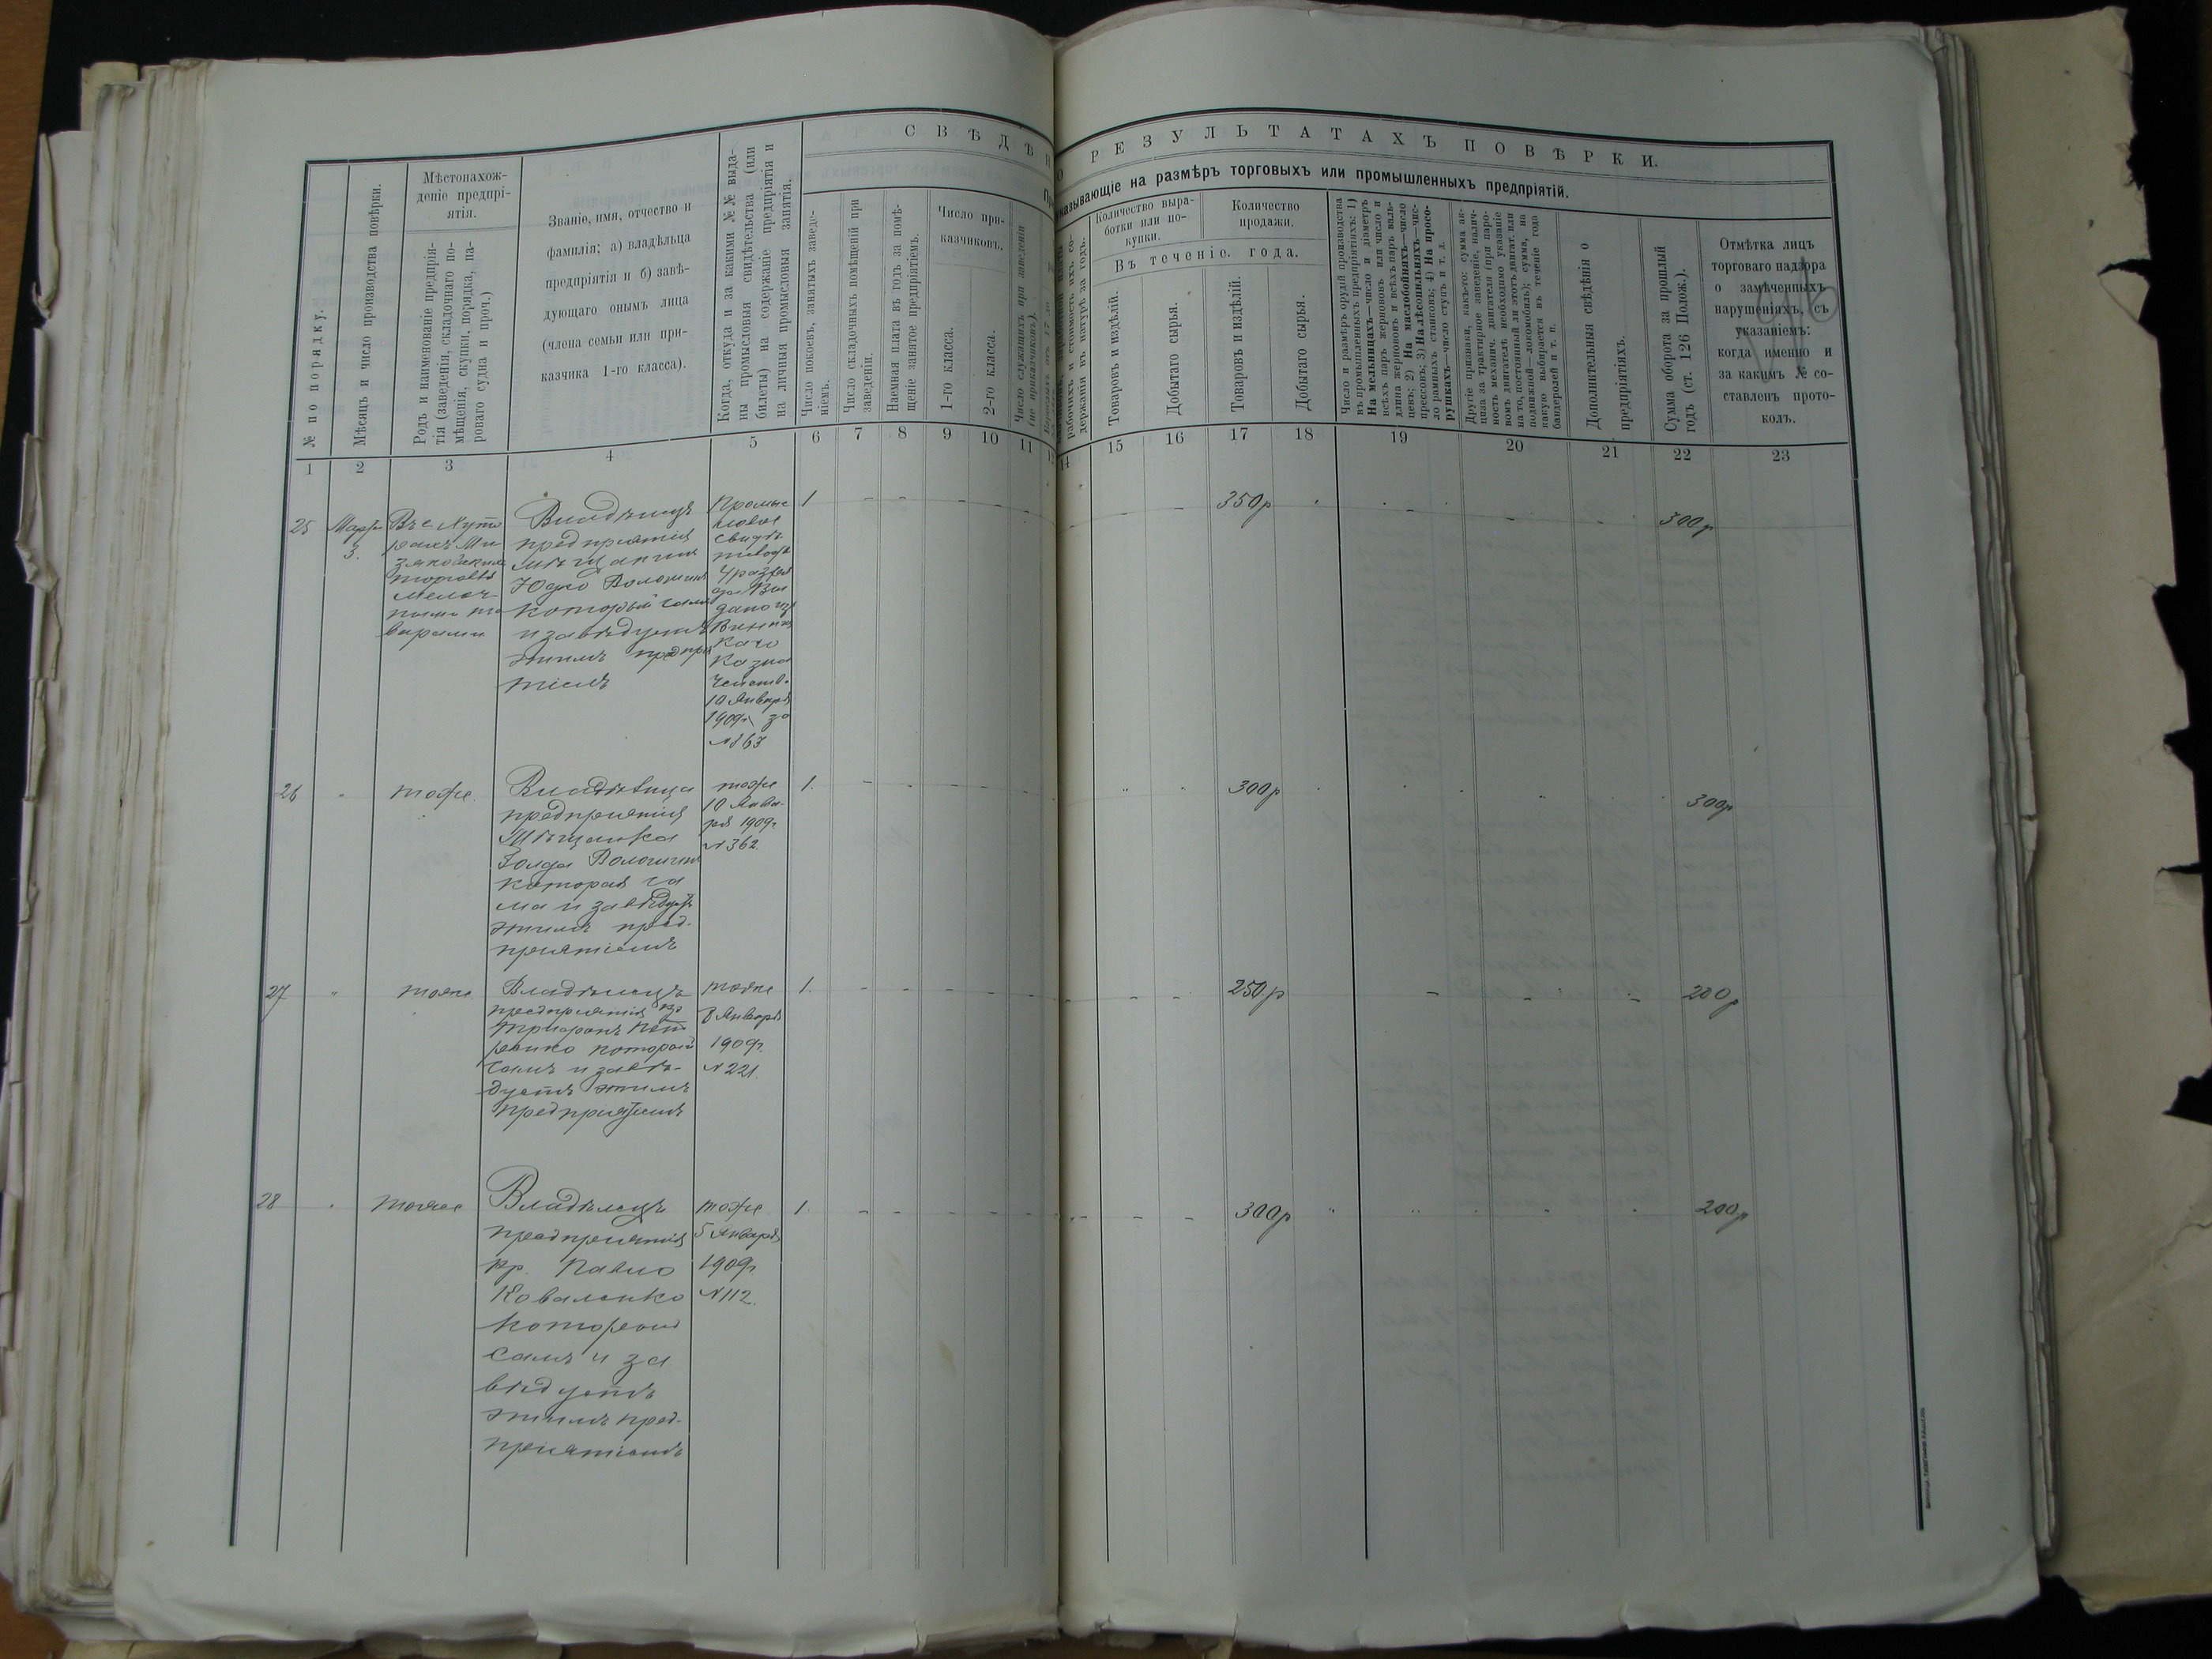 СВѢДѢН
О РЕЗУЛЬТАТАХЪ ПОВѢРКИ.
казывающіе на размѣръ торговыхъ или промышленныхъ предпріятій.
№ по порядку.
Мѣсяцъ и число производства повѣрки.
Мѣстонахож-
деніе предпрі-
ятія.
Родъ и наименованіе предпрія-
тія (заведенія, складочнаго по-
мѣщенія, скупки. порядка, па-
роваго судна и проч.)
Званіе, имя, отчество и
фамилія; а) владѣльца
предпріятія и б) завѣ-
дующаго онымъ лица
(члена семьи или при-
казчика 1-го класса).
Когда, откуда и за какими №№ выда-
ны промысловыя свидѣтельства (или
билеты) на содержаніе предпріятія и
на личныя промысловыя занятія.
Число покоевъ, занятыхъ заведе-
ніемъ.
Число складочныхъ помѣщеній при
заведеніи.
Наемная плата въ годъ за помѣ-
щеніе занятое предпріятіемъ.
Число при-
казчиковъ.
1-го класса.
2-го класса.
Число служащихъ при заведеніи
(не приказчиковъ).
рабочихъ и стоимость ихъ со-
держанія въ натурѣ за годъ.
Количество выра-
ботки или по-
купки.
Количество
продажи.
Въ теченіе года.
Товаровъ и издѣлій.
Добытаго сырья.
Товаровъ и издѣлій.
Добытаго сырья.
Число и размѣръ орудій производства
въ промышленныхъ предпріятіяхъ: 1)
На мельницахъ—число и діаметръ
всѣхъ паръ жернововъ или число и
длина жернововъ и всѣхъ паръ валь-
цевъ; 2) На маслобойняхъ—число
прессовъ; 3) На лѣсопильняхъ—чис-
ло рамныхъ станковъ; 4) На просо-
рушкахъ—число ступъ и т. д.
Другіе признаки, какъ-то: сумма ак-
циза за трактирное заведеніе, налич-
ность механич. двигателя (при паро-
вомъ двигателѣ необходимо указаніе
на то, постоянный ли этотъ двигат. или
подвижной—локомобиль); сумма, на
какую выбирается въ теченіе года
бандеролей и т. п.
Дополнительныя свѣдѣнія о
предпріятіяхъ.
Сумма оборота за прошлый
годъ (ст. 126 Полож.).
Отмѣтка лицъ
торговаго надзора
о замѣченныхъ
нарушеніяхъ, съ
указаніемъ:
когда именно и
за какимъ № со-
ставленъ прото-
колъ.
1 2 3 4 5 6 7 8 9 10 11 14 15 16 17 18 19 20 21 22 23
25
Марта
3.
торговля
мелоч-
ными то
варами
Владѣлецъ
предпріятія
мѣщанинъ
который самъ
и завѣдуетъ
этимъ предпрі
ятіемъ
Промыс
ловое
свидѣ
тельст
4 разряд
Вы
дано из
Винниц
каго
Казна
чейств.
10 Января
1909г. за
№363
1 - - - - - 350р 300р
26 " тоже
Владѣлица
предпріятія
Мѣщанка
которая са
ма и завѣдует
этимъ пред-
пріятіемъ
тоже
10 Янва-
ря 1909г
№362.
1. 300р 300р
27 " тоже
Владѣлецъ
предпріятія кр
который
самъ и завѣ-
дуетъ этимъ
предпріятіемъ
тоже
8 Января
1909г.
№221.
1. 250р 200р
28 " тоже
Владѣлецъ
предпріятія
кр. Павло
Коваленко
который
самъ и за
вѣдуетъ
этимъ пред-
пріятіемъ
тоже
5 Января
1909г
№112.
1. 300р 200р